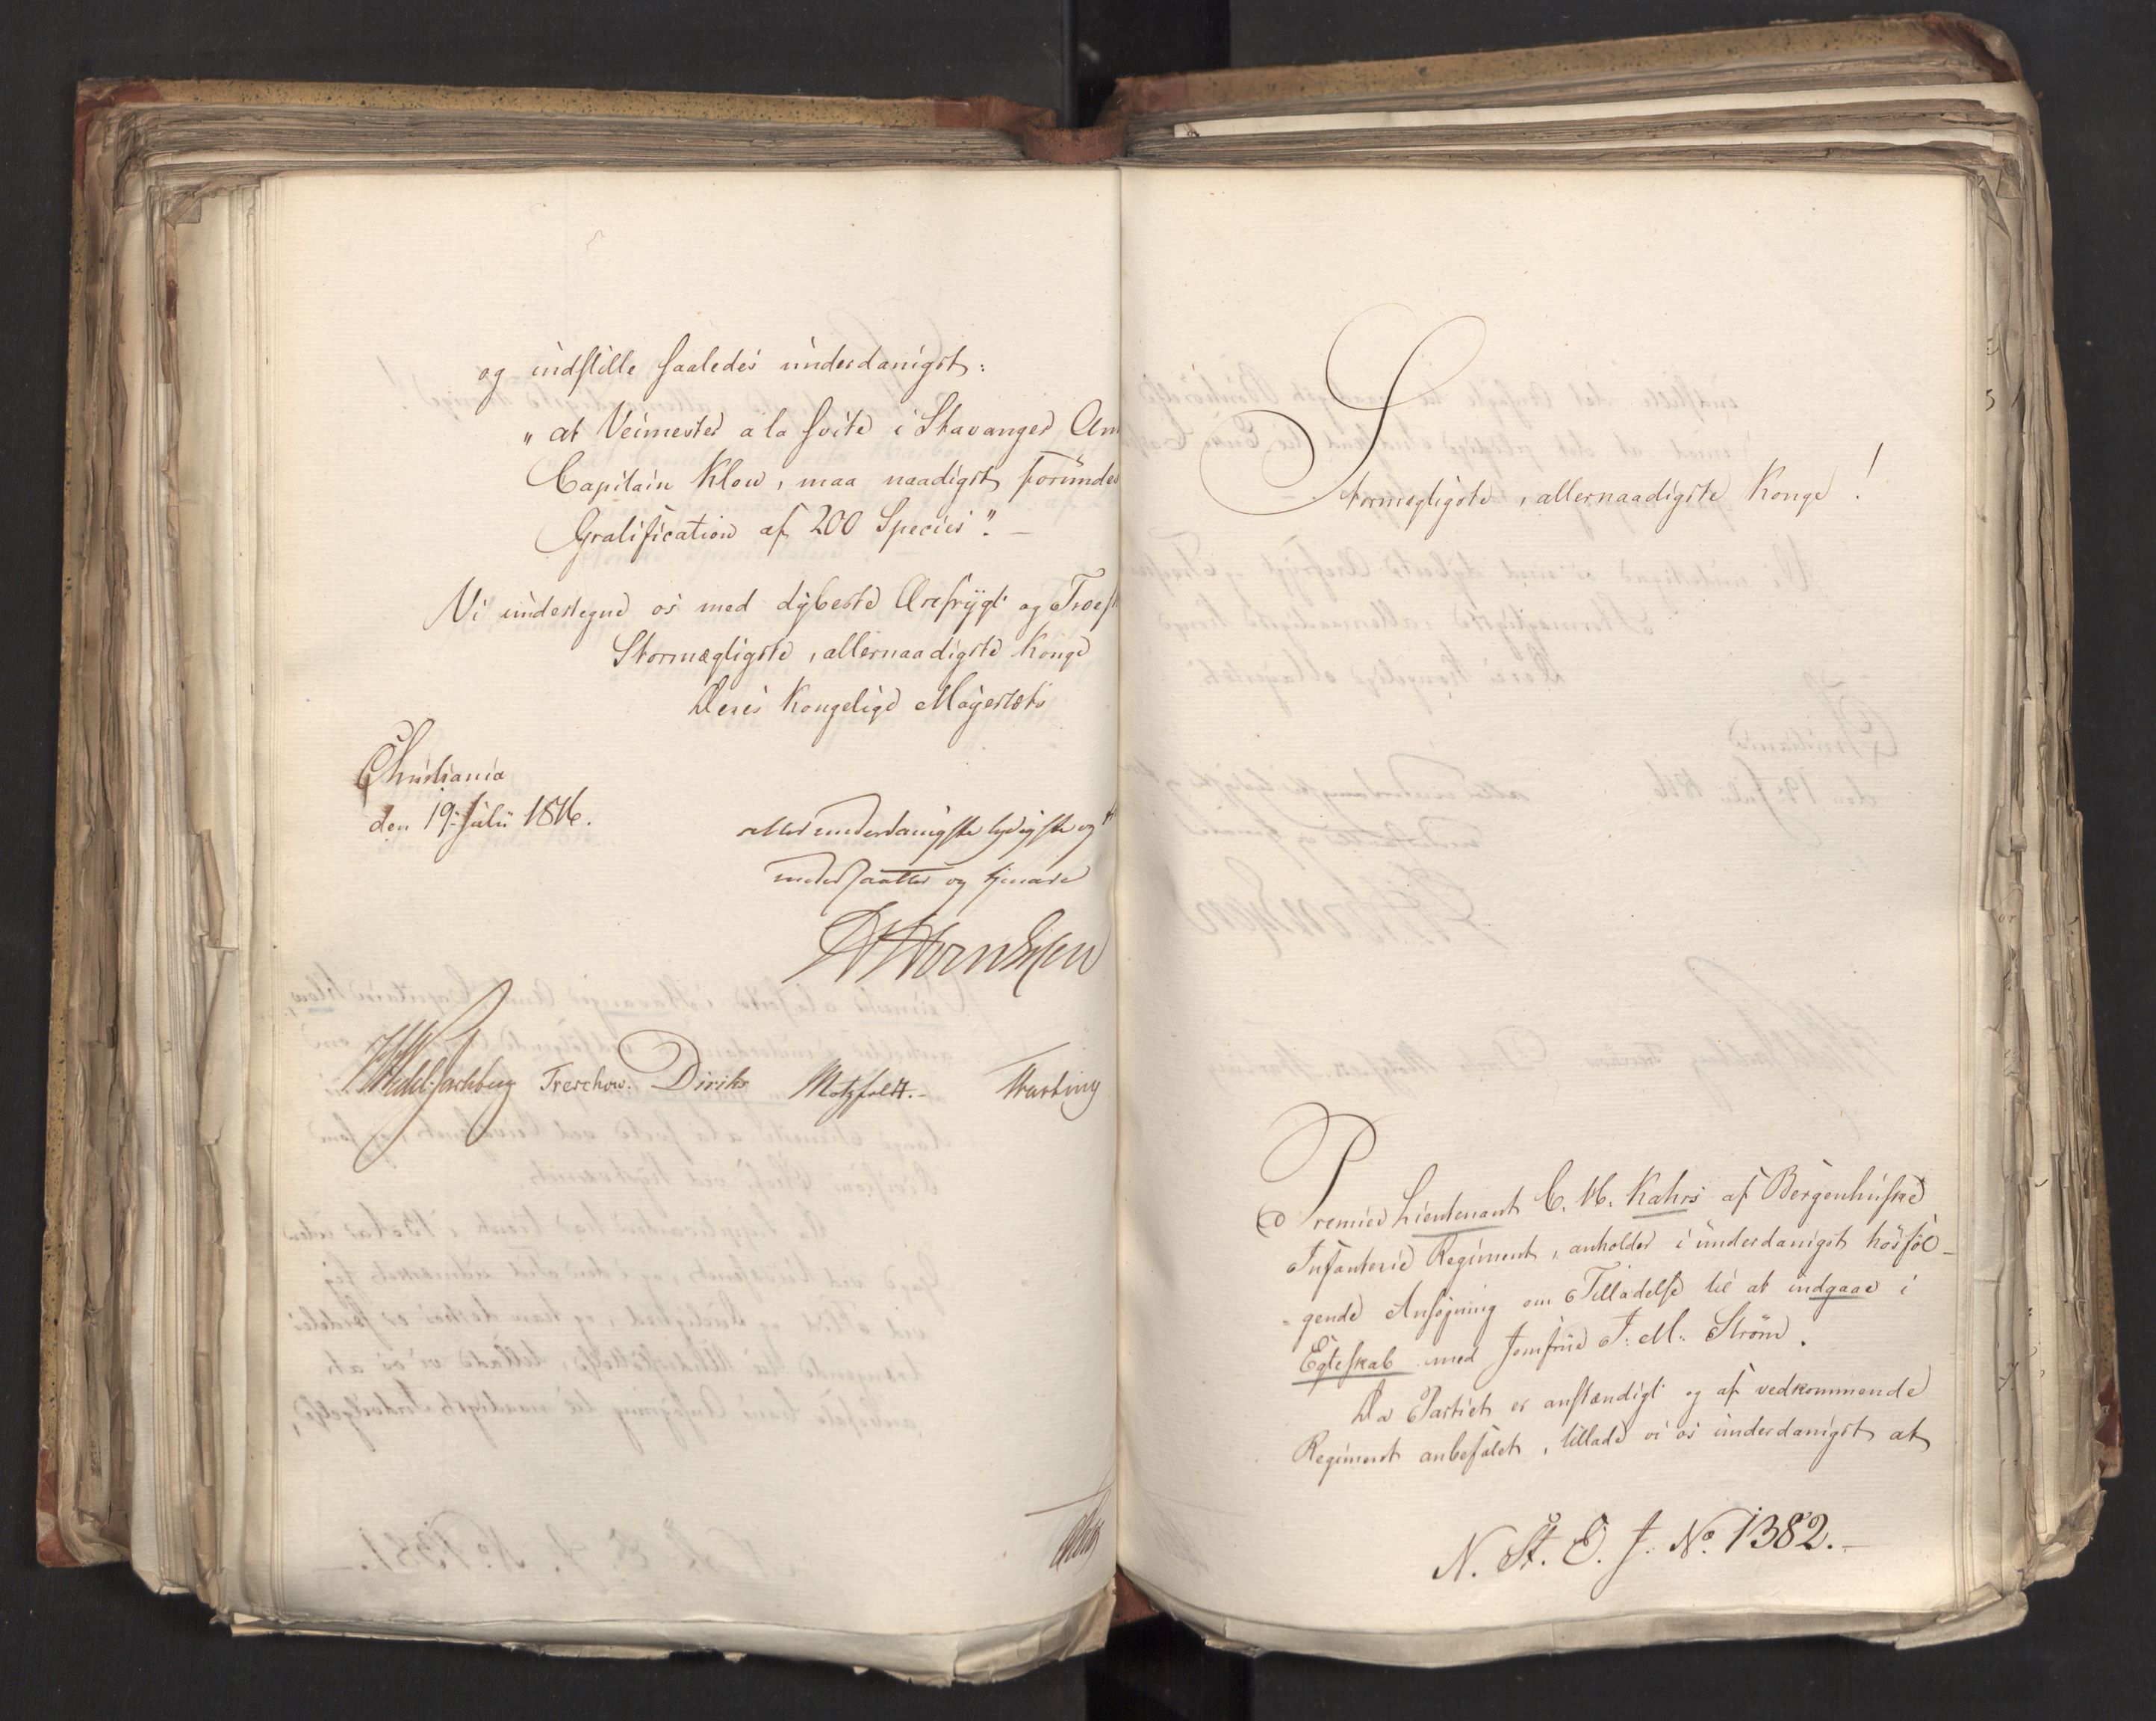 og indstille saaledes underdanigst:
„at Veimester a la suite i Stavanger Am
Capitain Klow, maa naadigst forundes
Gratification af 200 Species". –
Vi undertegne os med dybeste Ærefrygt og Troes
Stormægtigste, allernaadigste Konge
Deres Kongelige Majestæts
Christiania
den 19: Julii 1816.
allerunderdanigste lydigste og
undersaatter og tjenare
Wedel-Jarlsberg Treschow. Diriks Motzfeldt.- 
Stormægtigste, allernaadigste Konge!
Premier Lieutenant C. M. Kahrs af Bergenhusske
Infanterie Regiment, anholder i underdanigst hosføl-
-gende Ansøgning om Tilladelse til at indgaae i
Egteskab med Jomfrue J: M: Strøm.
Da Partiet er anstændigt og af vedkommende
Regiment anbefalet, tillade vi os underdanigst at
N. St. E. J. No 1382.-